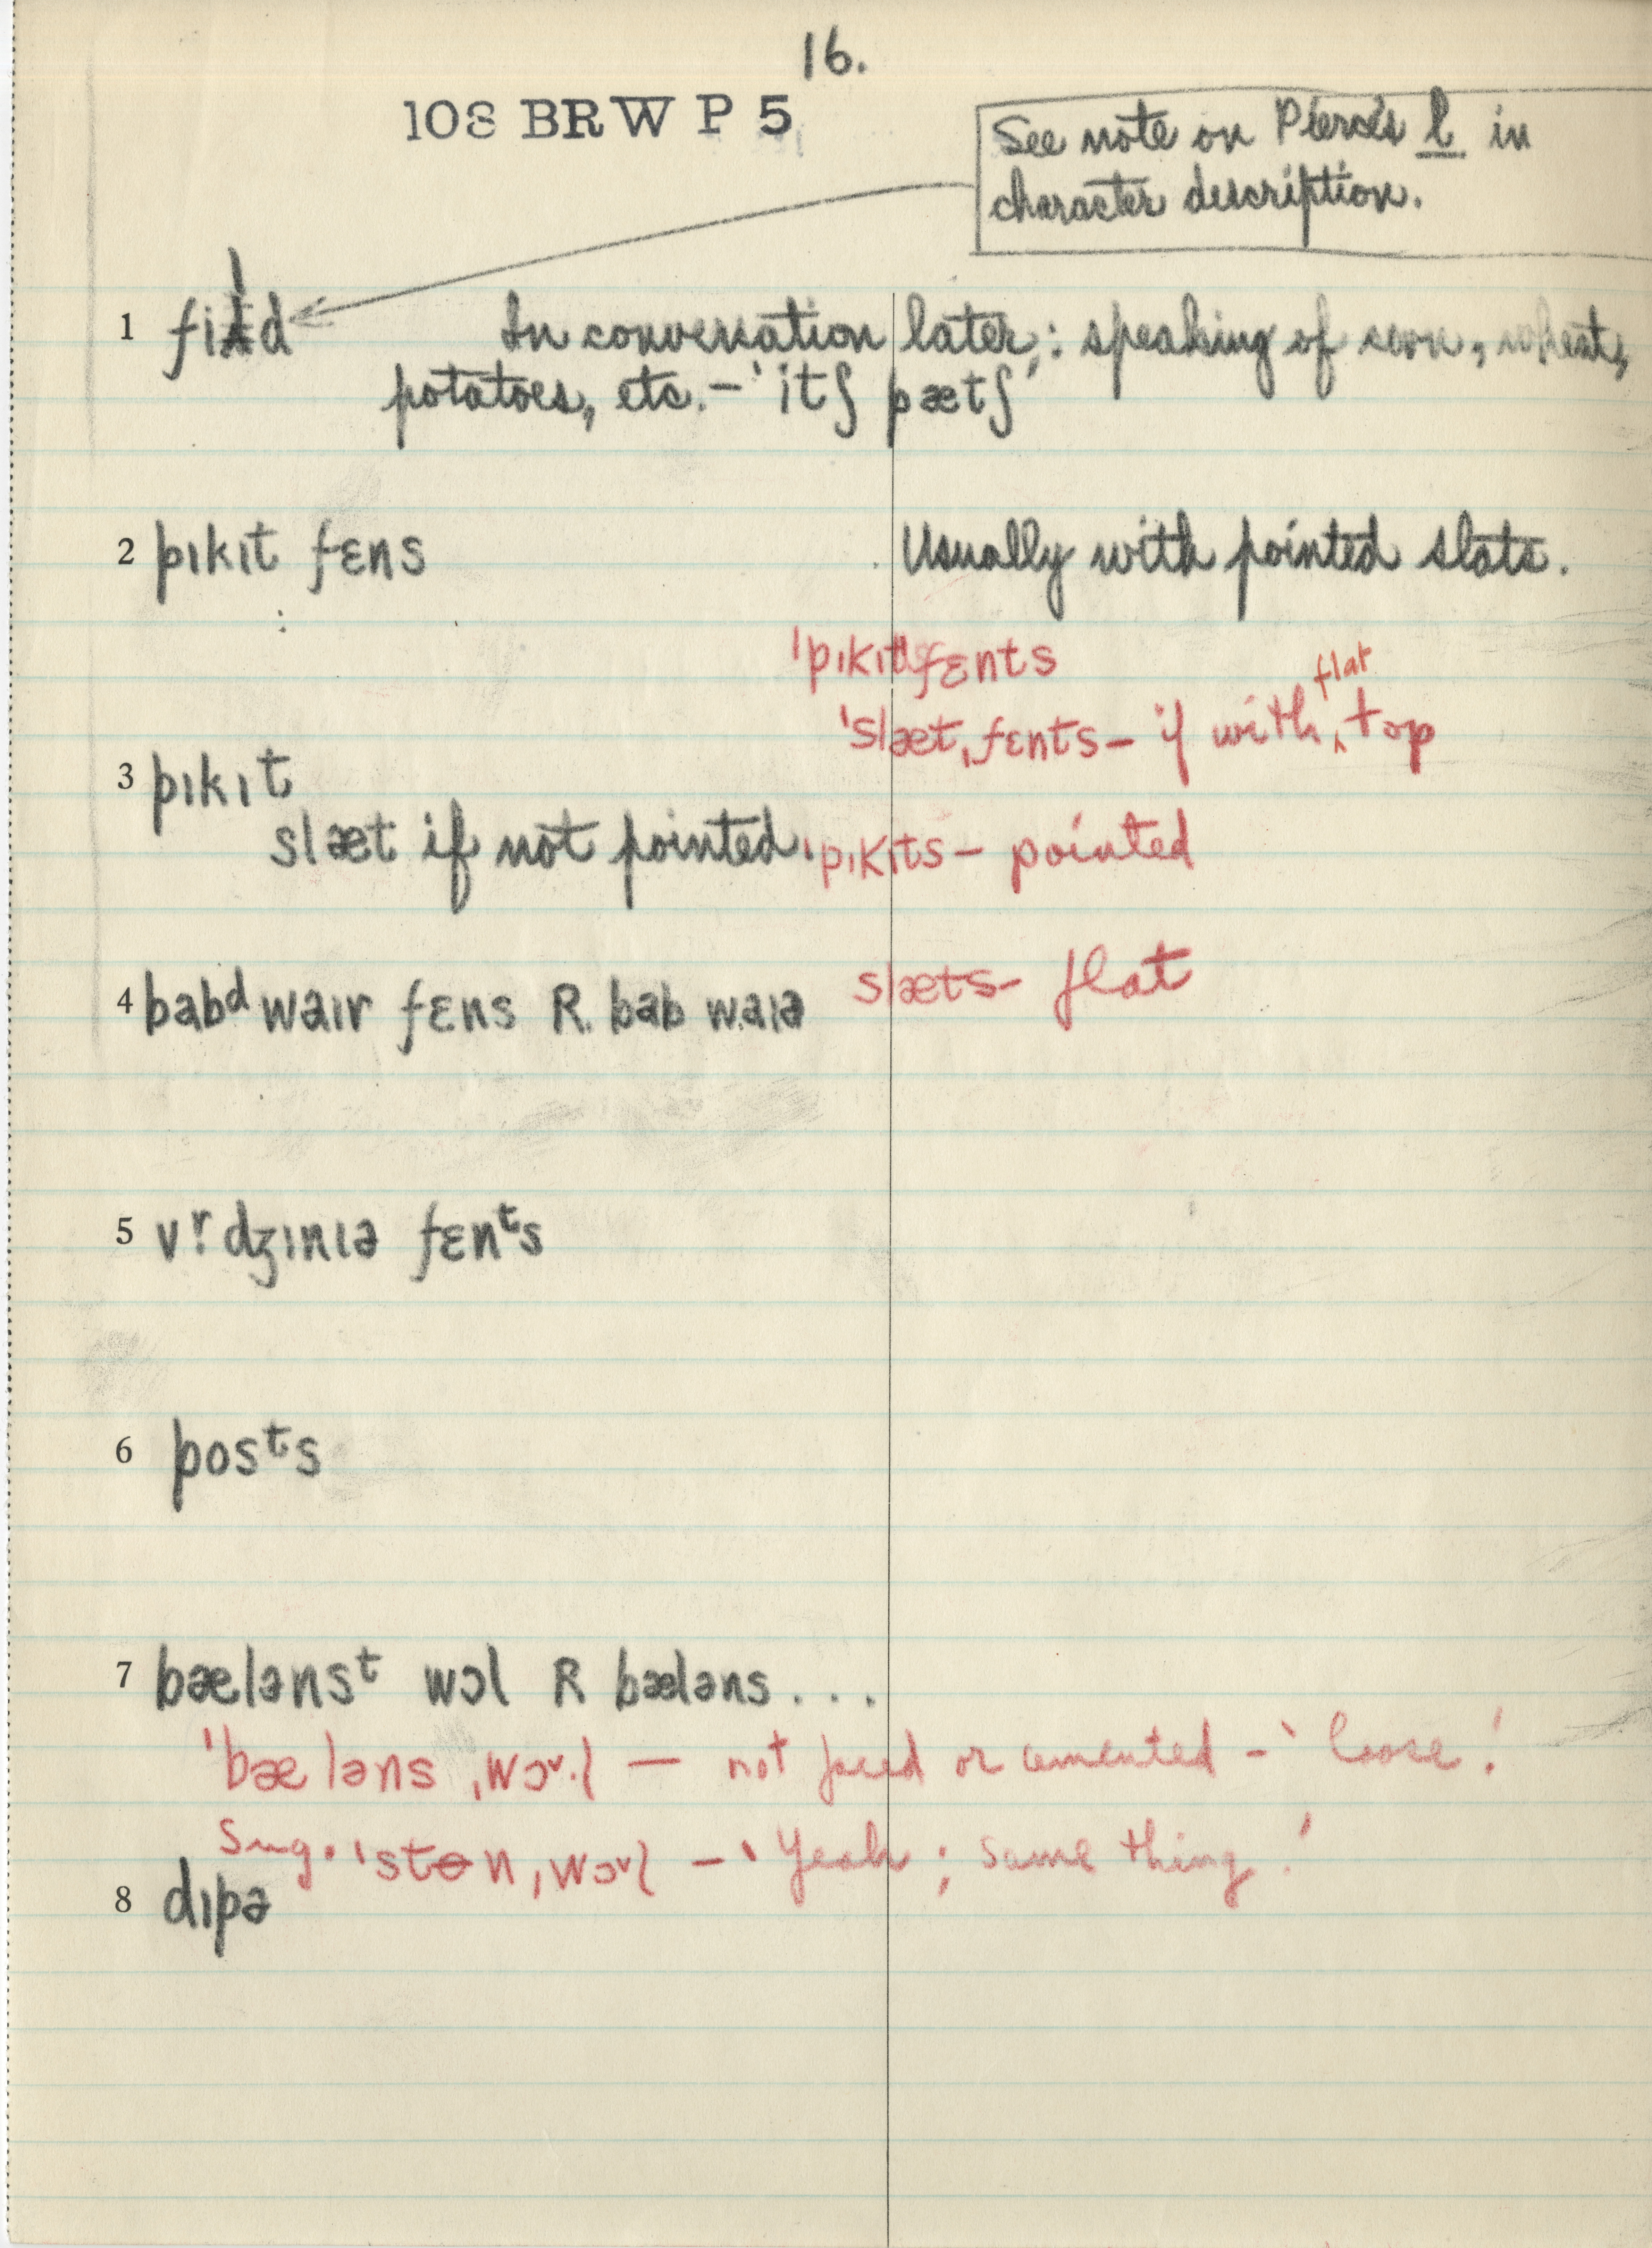 16.
108 BRW P 5
See note on Pierce's l in
character description.
1 fild In conversation later: speaking of corn, wheat,
potatoes, etc. – 'itʃ pætʃ'
2 pıkıt fɛns Usually with pointed slats.
'pıkıt fɛnts
'slæt,fɛnts – if with flat top
3 pıkıt
slæt if not pointed. 'pıkıts – pointed
slæts – flat
4 babᵈ waır fɛns R. bab waıə
5 vʳdʒınıə fɛnᵗs
6 posᵗs
7 bælənsᵗ wɔl R bæləns...
'bæləns ,wɔ˅·l — not faced or cemented – 'loose!'
Sug. 'stɵn,wɔ˅l – 'Yeah; same thing!'
8 dıpə